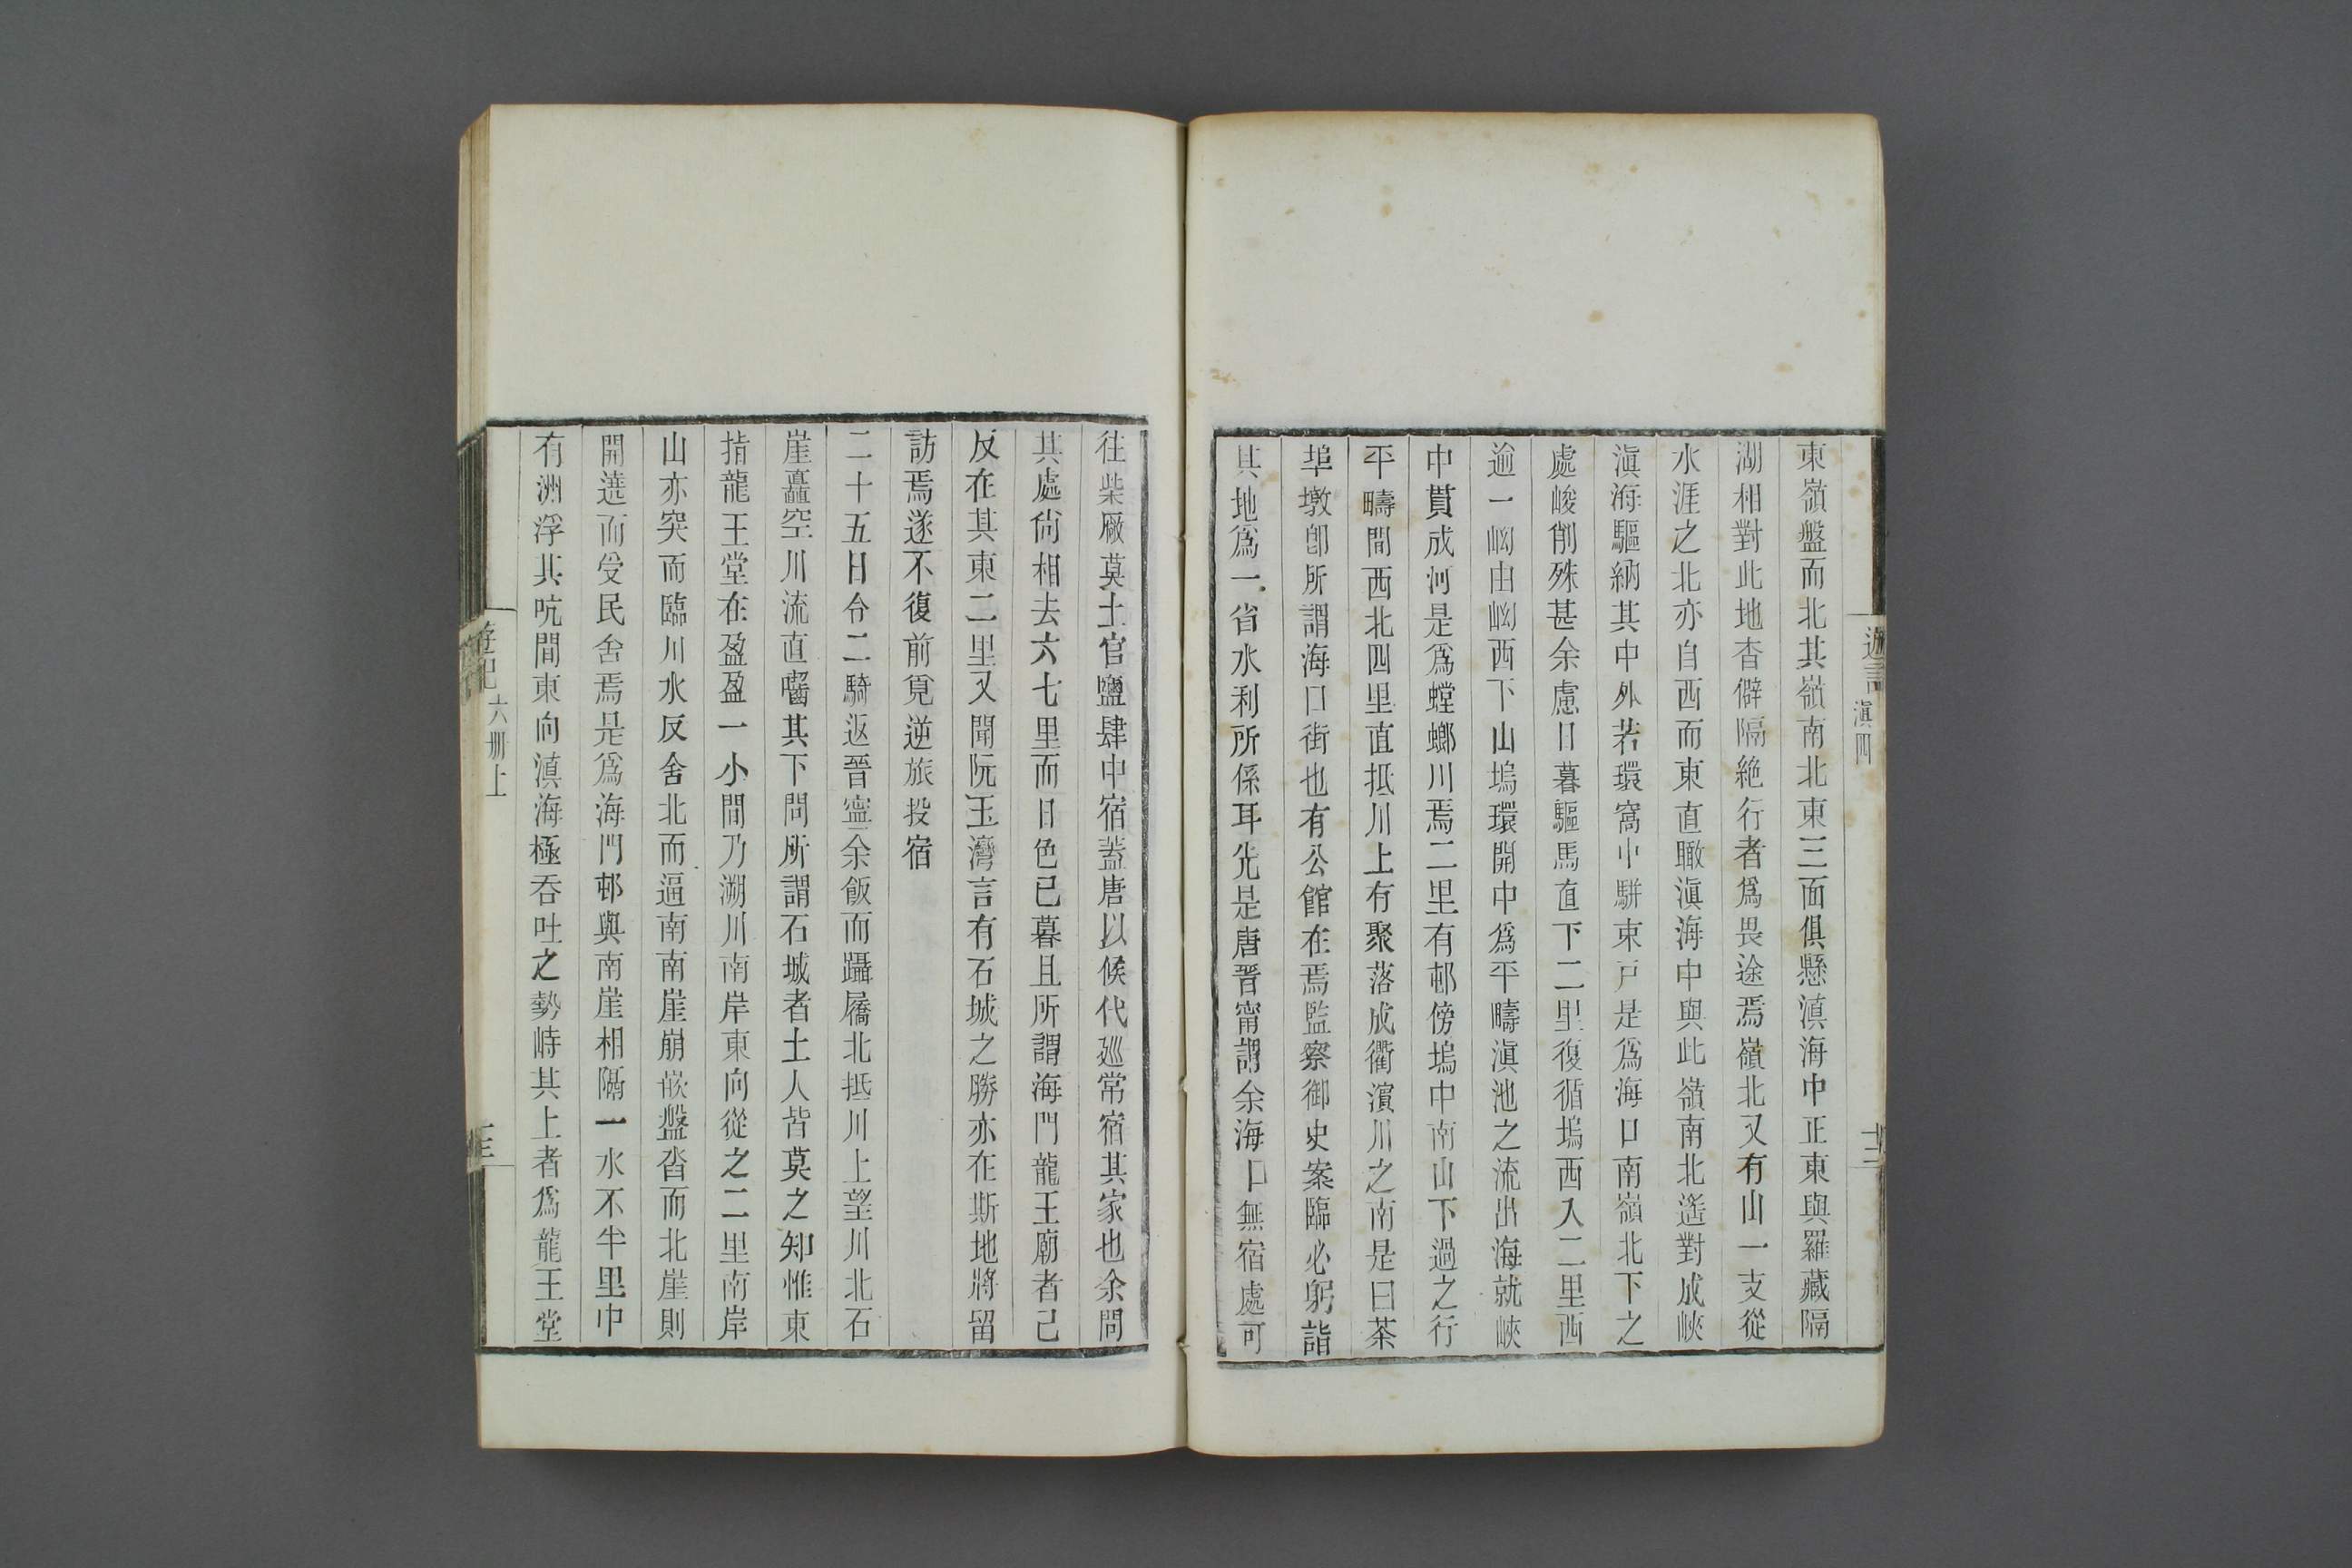 東嶺盤而北其嶺南北東三面俱懸滇海中正東與羅藏隔
湖相對此地杳僻隔絶行者爲畏途焉嶺北又有山一支從
水涯之北亦自西而東直瞰滇海中與此嶺南北遙對成峽
滇海驅納其中外若環窩中駢束戸是爲海口南嶺北下之
處峻削殊甚余慮日暮驅馬直下二里復循塢西入二里西
逾一岰由岰西下山塢環開中爲平疇滇池之流出海就峽
中貫成河是爲螳螂川焉二里有邨傍塢中南山下過之行
平疇間西北四里直抵川上有聚落成衢濵川之南是曰茶
埠墩卽所謂海口街也有公館在焉監察御史案臨必躬詣
其地爲一省水利所係耳先是唐晉甯謂余海口無宿處可
往柴厰莫土官鹽肆中宿蓋唐以候代廵常宿其家也余問
其處尙相去六七里而日色已暮且所謂海門龍王廟者己
反在其東二里又聞阮玉灣言有石城之勝亦在斯地將留
訪焉遂不復前覓逆旅投宿
二十五日令二騎返晉寧余飯而躡屩北抵川上望川北石
崖矗空川流直囓其下問所謂石城者土人皆莫之知惟東
指龍王堂在盈盈一小間乃溯川南岸東向從之二里南岸
山亦突而臨川水反舍北而逼南南崖崩嵌盤沓而北崖則
開遶而受民舍焉是爲海門邨與南崖相隔一水不半里中
有洲浮其吭間東向滇海極吞吐之勢峙其上者爲龍王堂
遊記
滇四
十三
遊記
六册上